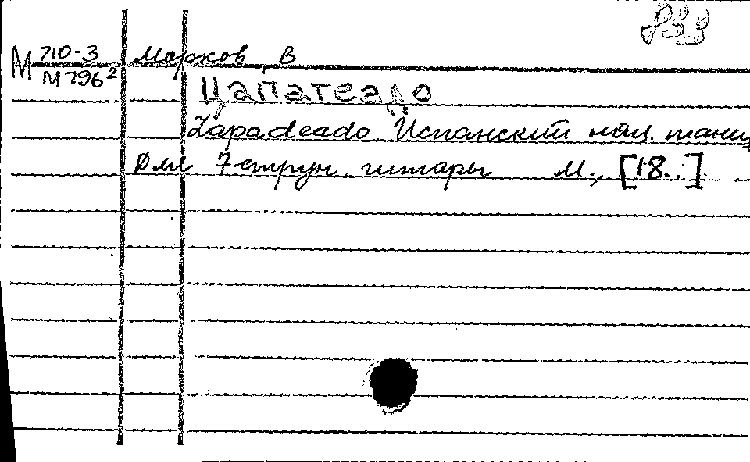 М 710-3
М 796²
Марков, В
Цапатеадо
Zapadeado Испанский нац. танец
Для 7-струн. гитары М., [18..]